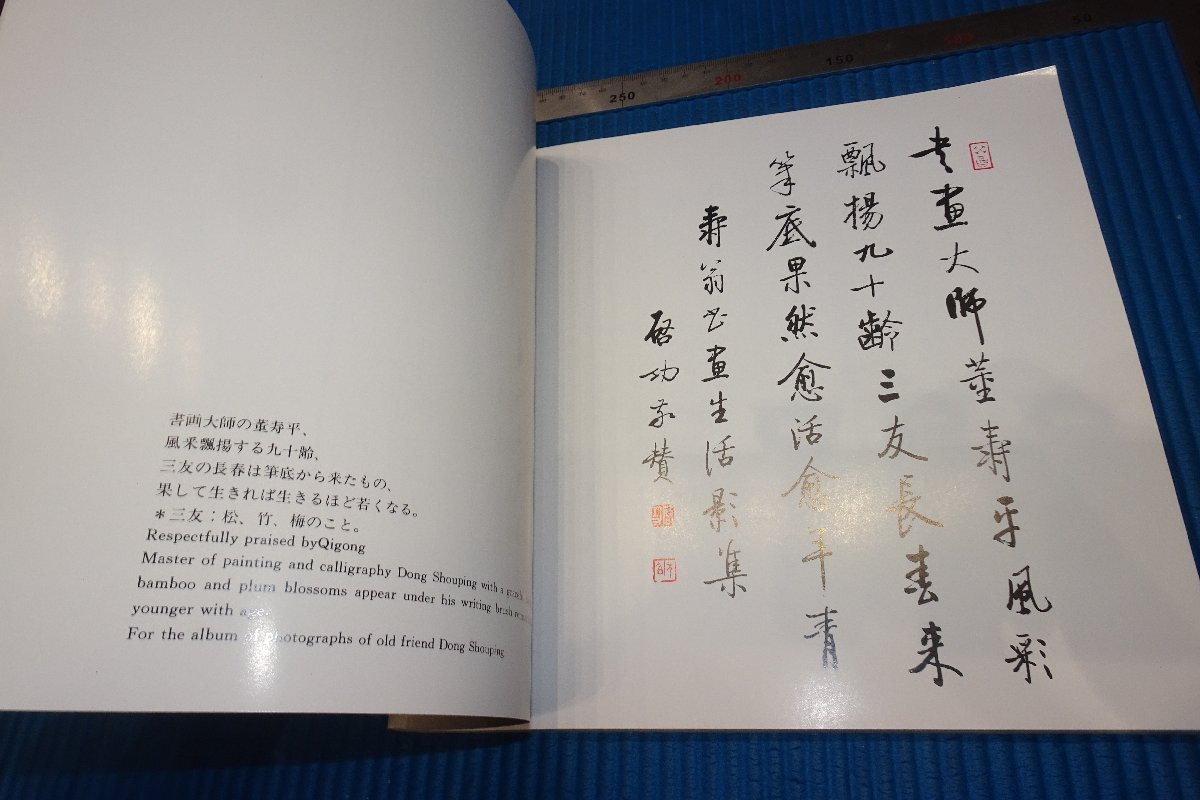 書画大師の董寿平、
風釆飄揚する九十齢、
三友の長春は筆底から来たもの、
果して生きれば生きるほど若くなる。
＊三友：松、竹、梅のこと。
Respectfully praised byQigong
Master of painting and calligraphy Dong Shouping with a
bamboo and plum blossoms appear under his writing brush
younger with age
For the album of photographs of old friend Dong Shouping
書畫大師董壽平風彩
飄揚九十齡三友長春来
筆底果然愈活愈年青
壽翁书畫生活影集
啓功敬贊
250
200
150
100
50